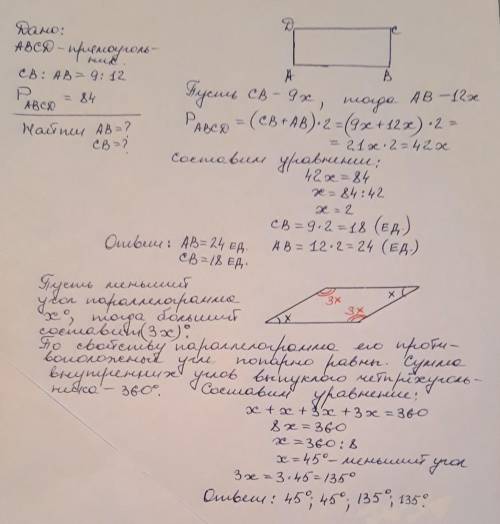 Дано:
ABCD - прямоуголь-
ник.
CB : AB = 9 : 12
P ABCD = 84
Найти AB = ?
CB = ?
D C
A B
Пусть CB - 9x, тогда AB - 12x
P ABCD = (CB + AB) · 2 = (9x + 12x) · 2 =
= 21x · 2 = 42x
Составим уравнение:
42x = 84
x = 84 : 42
x = 2
CB = 9 · 2 = 18 (ед.)
AB = 12 · 2 = 24 (ед.)
Ответ: AB = 24 ед.
CB = 18 ед.
Пусть меньший
угол параллелограмма
x°, тогда больший
составит (3x)°.
3x x
x 3x
По свойству параллелограмма его проти-
воположные углы попарно равны. Сумма
внутренних углов выпуклого четырёхуголь-
ника - 360°. Составим уравнение:
x + x + 3x + 3x = 360
8x = 360
x = 360 : 8
x = 45° - меньший угол
3x = 3 · 45 = 135°
Ответ: 45°; 45°; 135°; 135°.